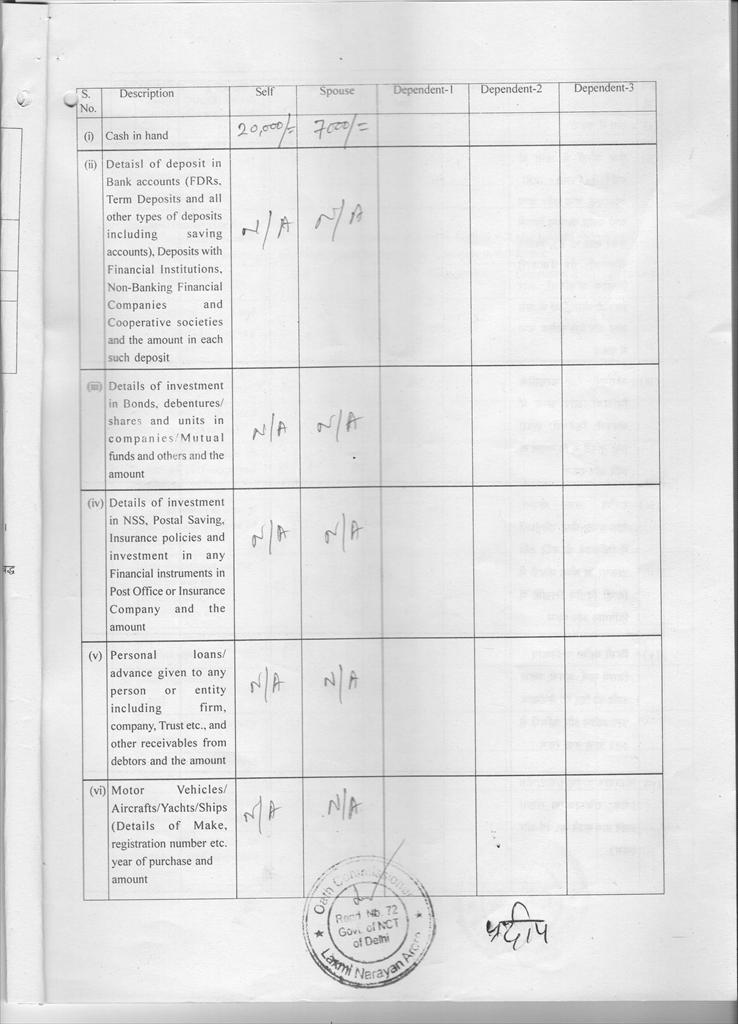 S. No. Description Self Spouse Dependent-1 Dependent-2 Dependent-3
(i) Cash in hand 20,000/= 7000/=
(ii) Detaisl of deposit in
Bank accounts (FDRs,
Term Deposits and all
other types of deposits
including saving
accounts), Deposits with
Financial Institutions,
Non-Banking Financial
Companies and
Cooperative societies
and the amount in each
such deposit
N/A N/A
(iii) Details of investment
in Bonds, debentures/
shares and units in
companies/Mutual
funds and others and the
amount
N/A N/A
(iv) Details of investment
in NSS, Postal Saving,
Insurance policies and
investment in any
Financial instruments in
Post Office or Insurance
Company and the
amount
N/A N/A
(v) Personal loans/
advance given to any
person or entity
including firm,
company, Trust etc., and
other receivables from
debtors and the amount
N/A N/A
(vi) Motor Vehicles/
Aircrafts/Yachts/Ships
(Details of Make,
registration number etc.
year of purchase and
amount
N/A N/A
Oath Commissioner
Regd. No. 72
Govt. of NCT
of Delhi
Laxmi Narayan Arora